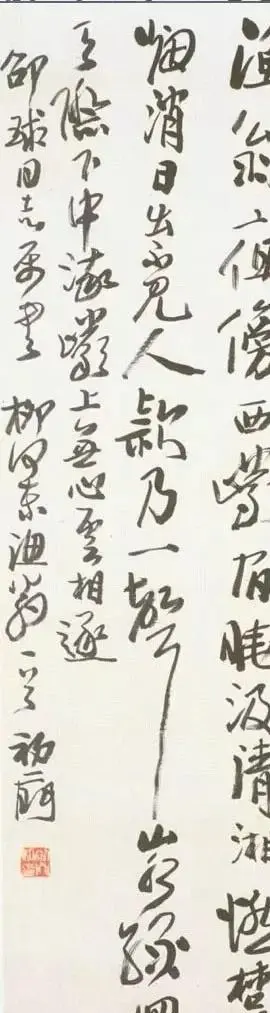 漁翁夜傍西巖宿曉汲清湘燃楚
烟消日出不見人欸乃一聲山水緑回
天際下中流巖上無心雲相逐
球同志属书 柳河東漁翁一首